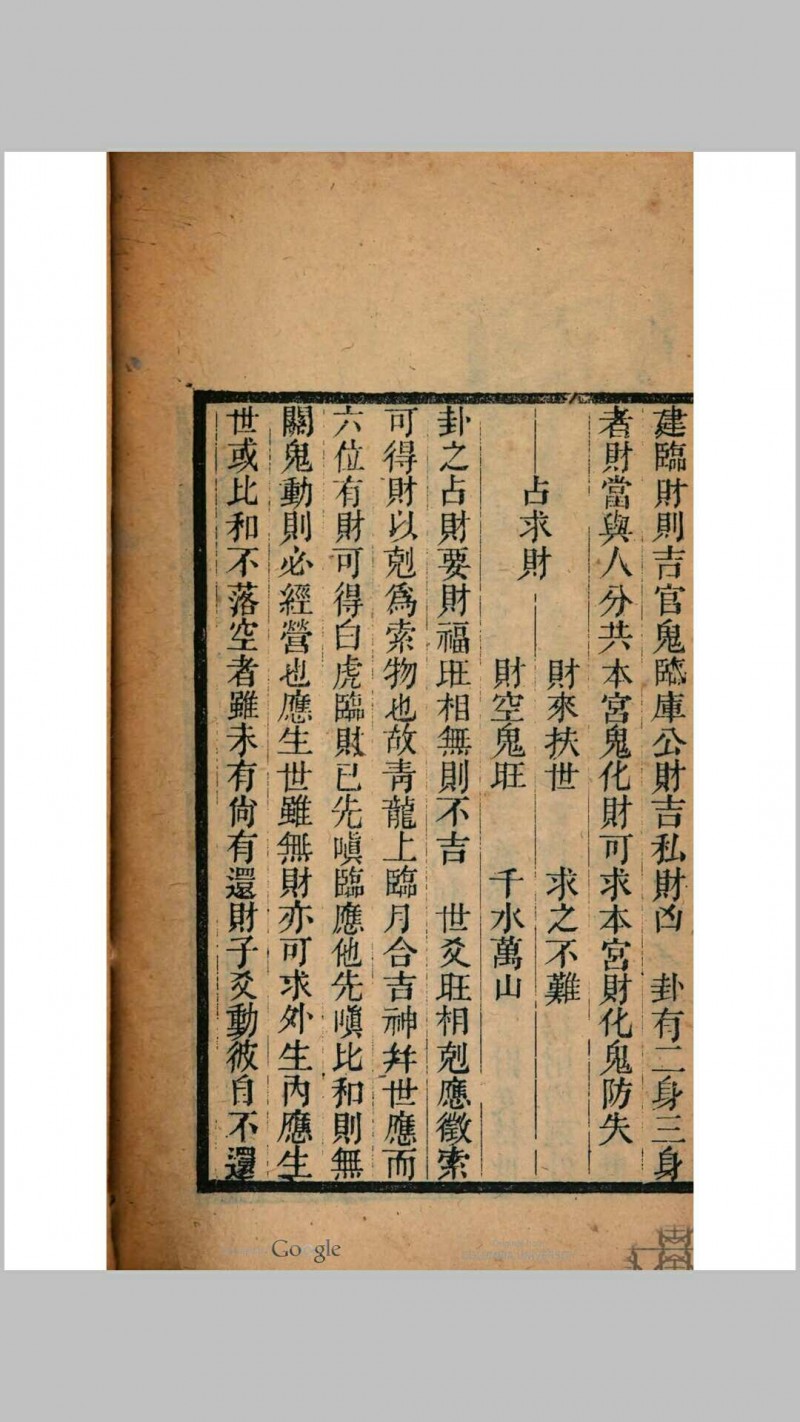 建臨財則吉官鬼臨庫公財吉私財凶　卦有二身三身
者財當與人分共本宮鬼化財可求本宮財化鬼防失
占求財
財來扶世　求之不難
財空鬼旺　千水萬山
卦之占財要財福旺相無則不吉　世爻旺相剋應徵索
可得財以剋爲索物也故靑龍上臨月合吉神幷世應而
六位有財可得白虎臨財已先嗔臨應他先嗔比和則無
關鬼動則必經營也應生世雖無財亦可求外生內應生
世或比和不落空者雖未有尙有還財子爻動彼自不還
Google